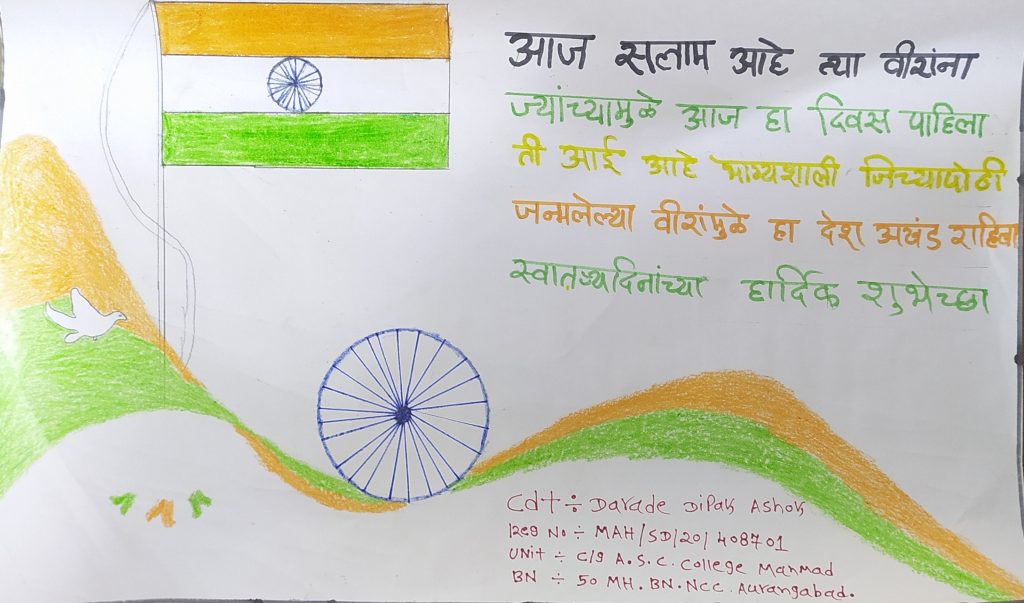 आज सलाम आहे त्या वीरांना
ज्यांच्यामुळे आज हा दिवस पाहिला
ती आई आहे भाग्यशाली जिच्यापोटी
जन्मलेल्या वीरांमुळे हा देश अखंड राहिला
स्वातंत्र्यदिनांच्या हार्दिक शुभेच्छा
Cdt ÷ Darade Dipak Ashok
Reg No ÷ MAH/SD/20/408701
UNit ÷ C/9 A.S.C. College Manmad
BN ÷ 50 MH.BN.NCC.Aurangabad.